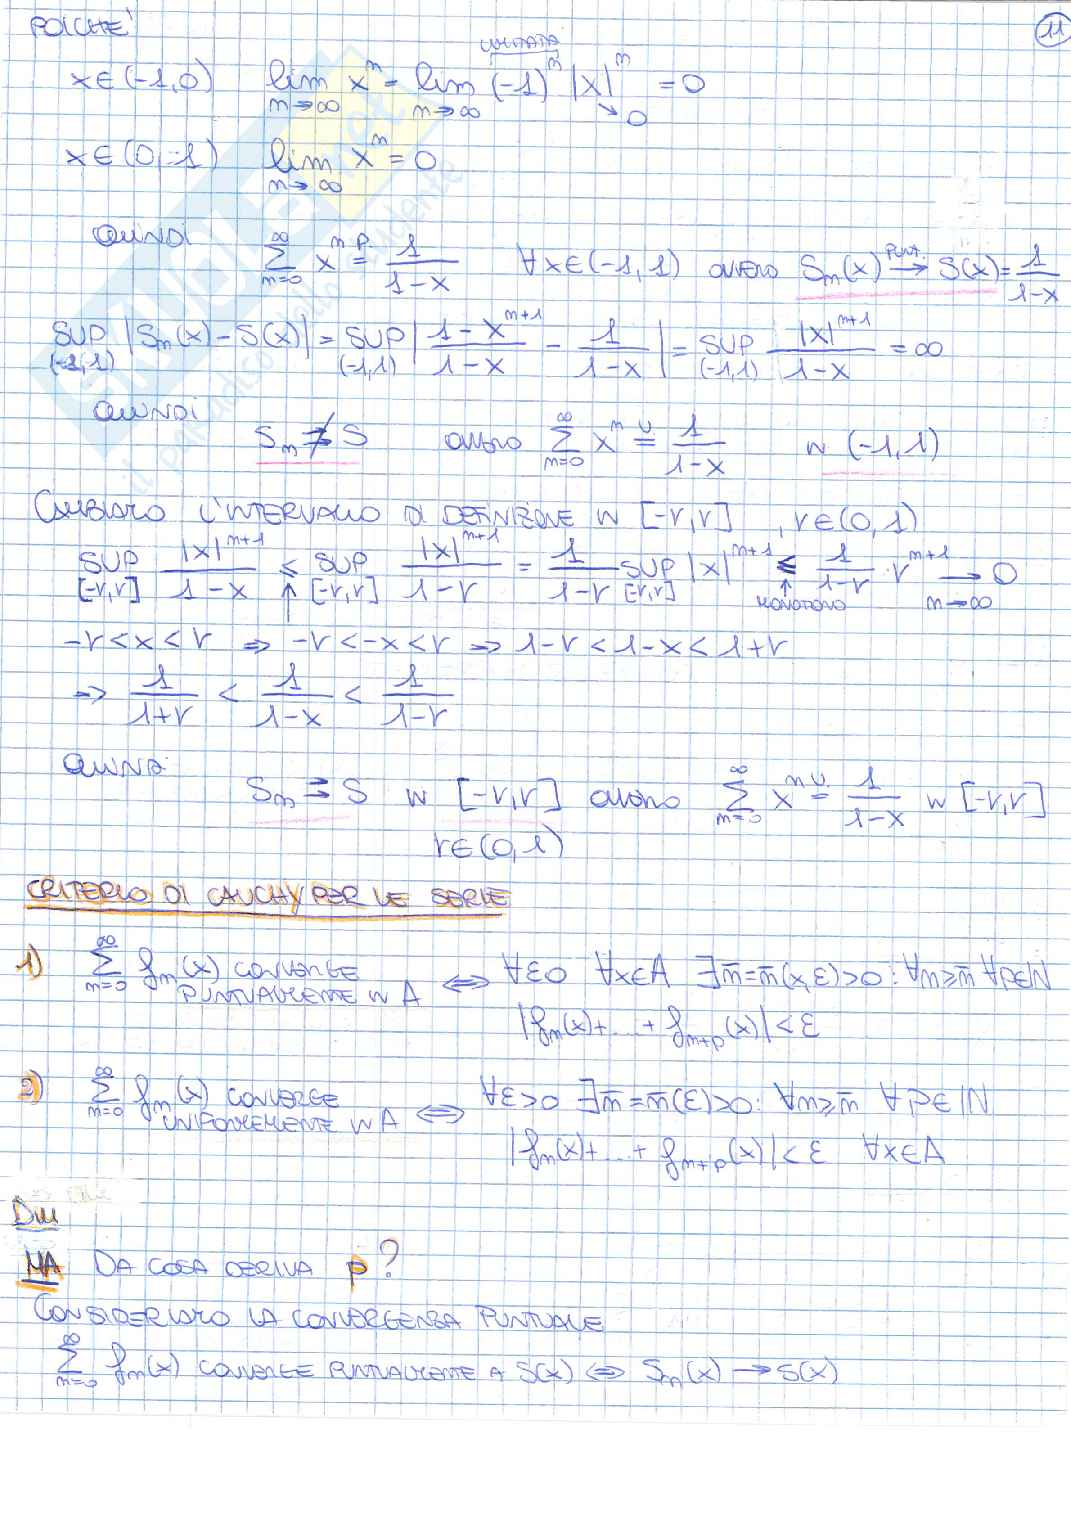 11
POICHE'
LIMITATA
x∈(-1,0) lim n→∞ x^n = lim n→∞ (-1)^n |x|^n = 0
→0
x∈(0,1) lim n→∞ x^n = 0
QUINDI ∑_{n=0}^{∞} x^n =^{P.} 1/(1-x) ∀x∈(-1,1) OVVERO S_n(x) →^{PUNT.} S(x)=1/(1-x)
SUP_{(-1,1)} |S_n(x)-S(x)| = SUP_{(-1,1)} |(1-x^{n+1})/(1-x) - 1/(1-x)| = SUP_{(-1,1)} |x|^{n+1}/(1-x) = ∞
QUINDI
S_n ⇉̸ S OVVERO ∑_{n=0}^{∞} x^n =^{U} 1/(1-x) IN (-1,1)
CAMBIAMO L'INTERVALLO DI DEFINIZIONE IN [-r,r] , r∈(0,1)
SUP_{[-r,r]} |x|^{n+1}/(1-x) ≤ SUP_{[-r,r]} |x|^{n+1}/(1-r) = 1/(1-r) SUP_{[-r,r]} |x|^{n+1} ≤ 1/(1-r) · r^{n+1} → 0
↑ ↑ MONOTONO n→∞
-r<x<r ⇒ -r<-x<r ⇒ 1-r<1-x<1+r
⇒ 1/(1+r) < 1/(1-x) < 1/(1-r)
QUINDI
S_n ⇉ S IN [-r,r] OVVERO ∑_{n=0}^{∞} x^n =^{U.} 1/(1-x) IN [-r,r]
r∈(0,1)
CRITERIO DI CAUCHY PER LE SERIE
1) ∑_{n=0}^{∞} f_n(x) CONVERGE PUNTUALMENTE IN A ⇔ ∀ε0 ∀x∈A ∃n̄=n̄(x,ε)>0: ∀n≥n̄ ∀p∈ℕ
|f_n(x)+...+f_{n+p}(x)|<ε
2) ∑_{n=0}^{∞} f_n(x) CONVERGE UNIFORMEMENTE IN A ⇔ ∀ε>0 ∃n̄=n̄(ε)>0: ∀n≥n̄ ∀p∈ℕ
|f_n(x)+...+f_{n+p}(x)|<ε ∀x∈A
DIM
MA DA COSA DERIVA p?
CONSIDERIAMO LA CONVERGENZA PUNTUALE
∑_{n=0}^{∞} f_n(x) CONVERGE PUNTUALMENTE A S(x) ⇔ S_n(x) → S(x)